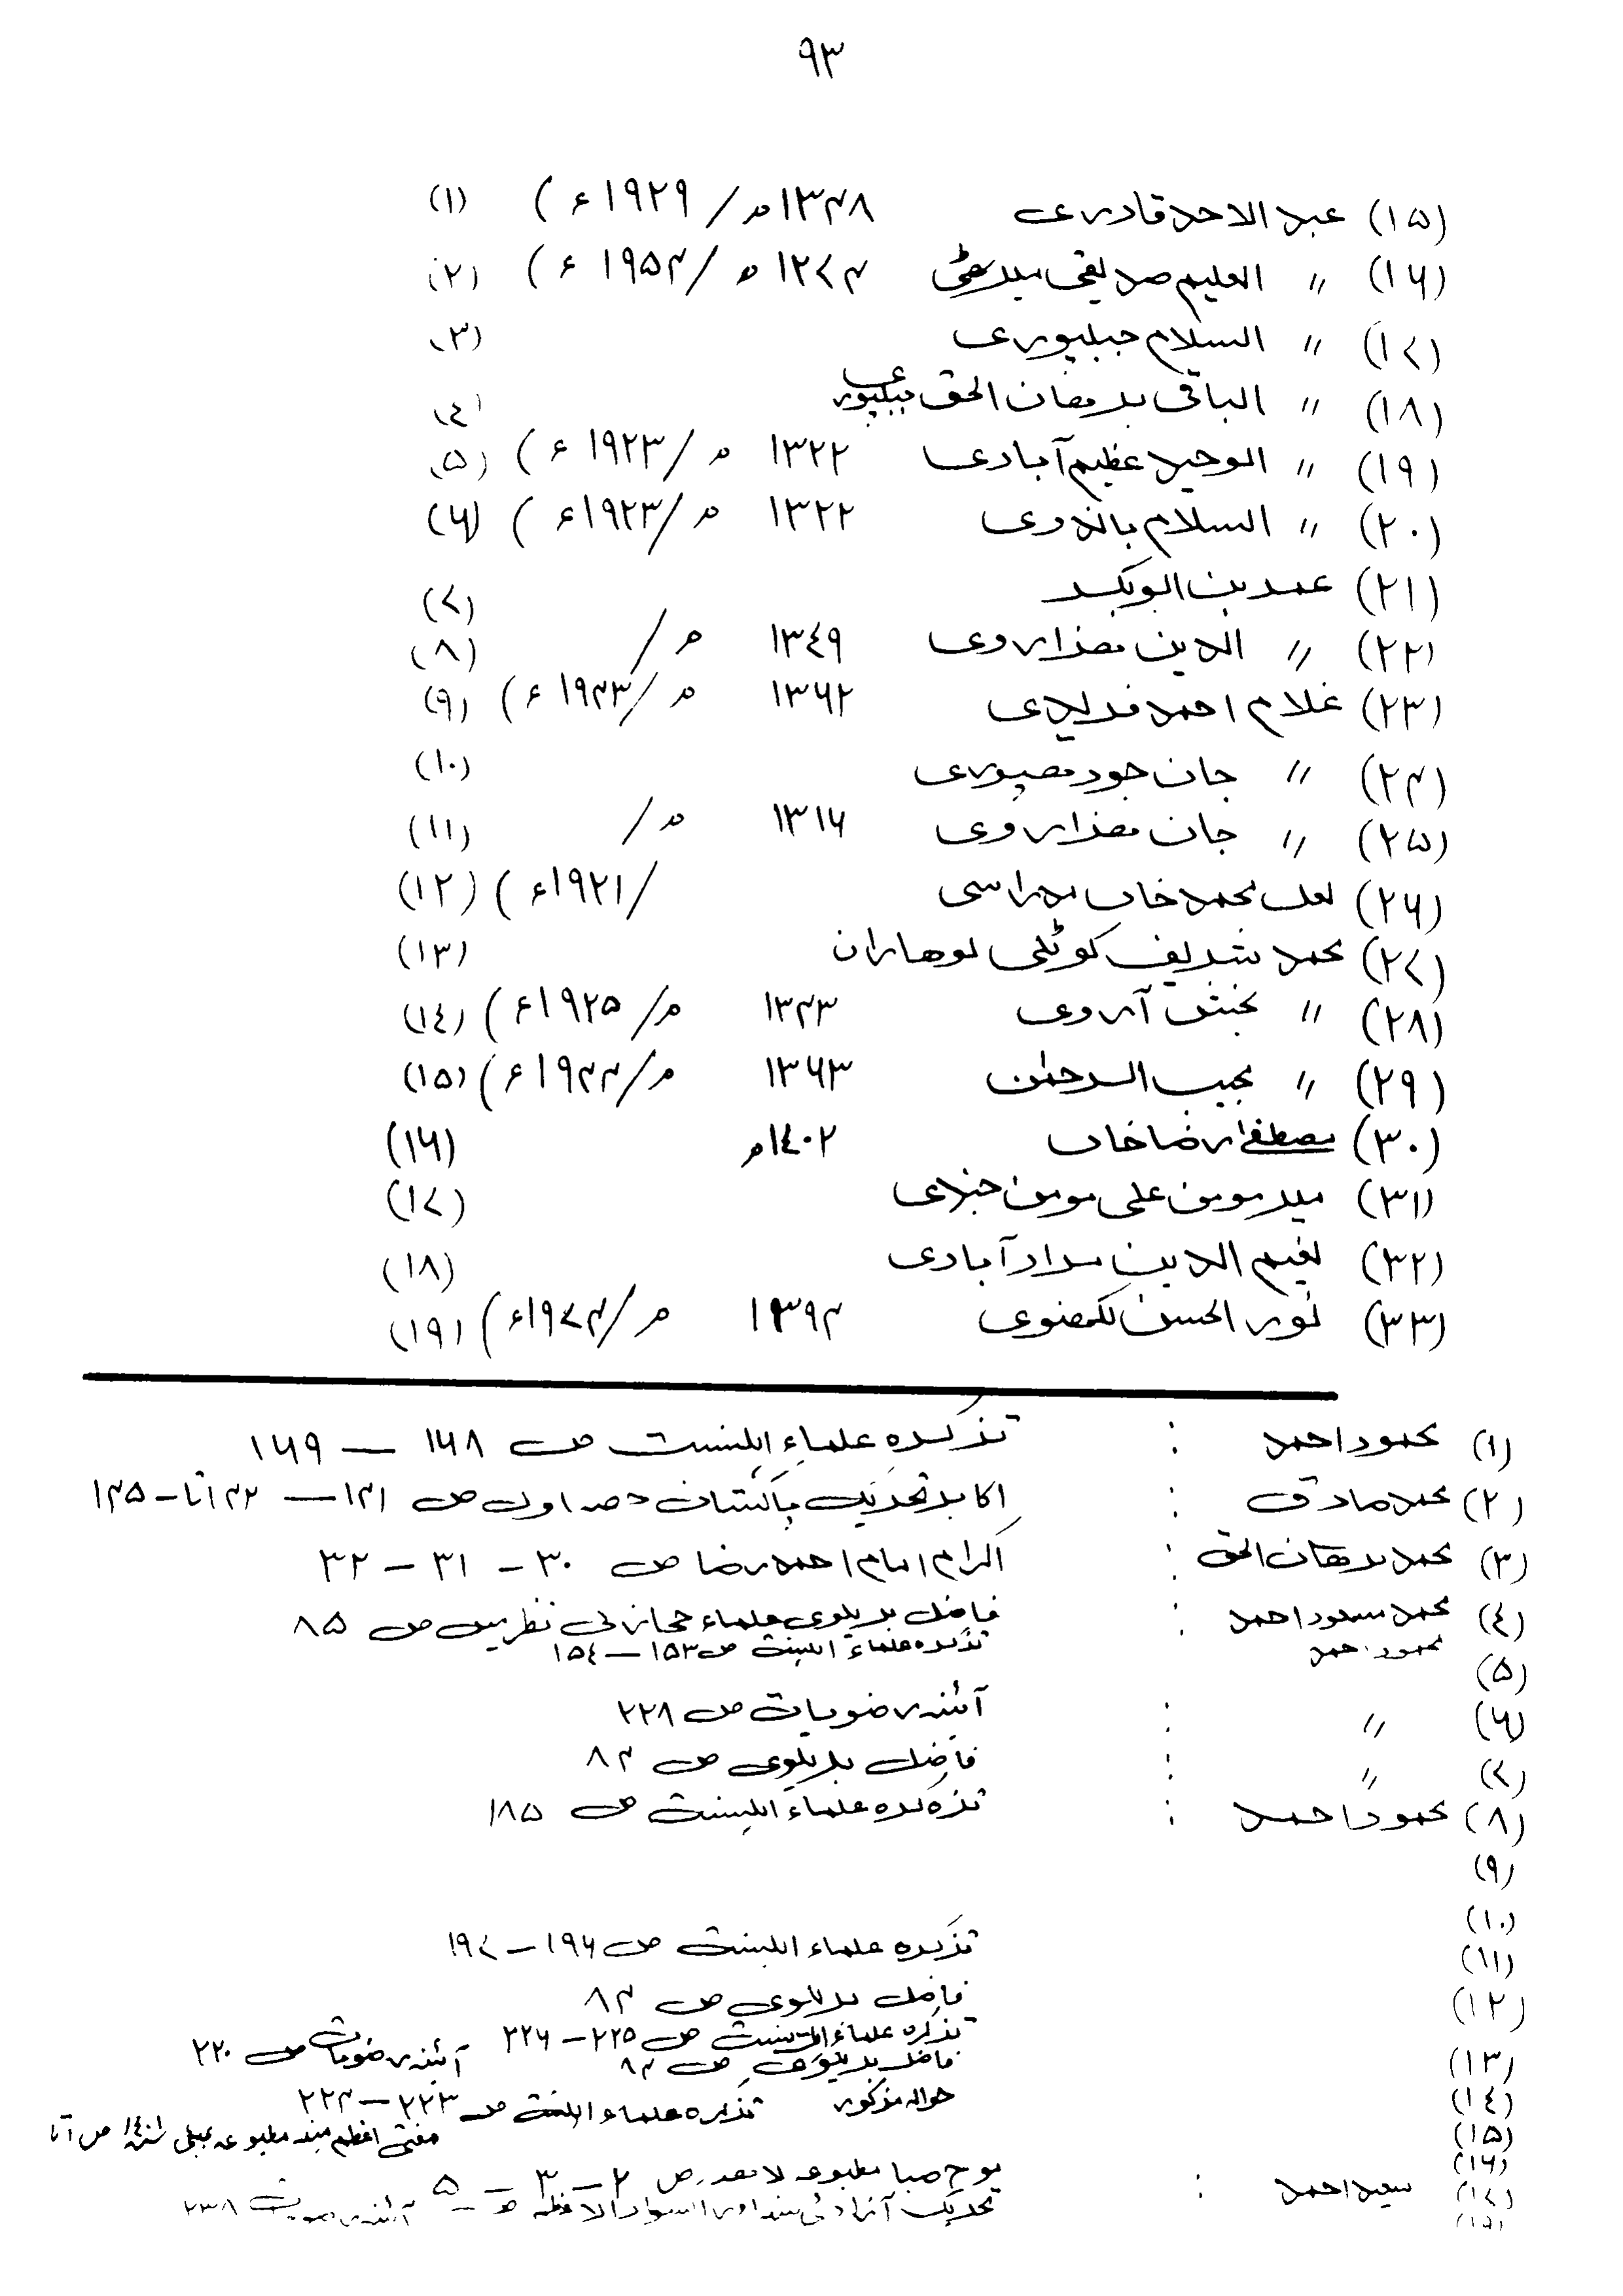 ۹۳
(۱۵) عبد الاحد قادری ۱۳۴۸ھ / ۱۹۲۹ء ) (۱)
(۱۶) 〃 العلیم صدیقی میرٹھی ۱۳۷۴ھ / ۱۹۵۴ء ) (۲)
(۱۷) 〃 السلام جبلپوری (۳)
(۱۸) 〃 الباقی برہان الحق جبلپوری (٤)
(۱۹) 〃 الوحید عظیم آبادی ۱۳۲۲ ھ / ۱۹۲۳ء ) (۵)
(۲۰) 〃 السلام باندوی ۱۳۲۲ ھ / ۱۹۲۳ء ) (۶)
(۲۱) عمر بن ابوبکر (۷)
(۲۲) 〃 الدین ہزاروی ۱۳٤۹ ھ / (۸)
(۲۳) غلام احمد فریدی ۱۳۶۲ ھ / ۱۹۴۳ء ) (۹)
(۲۴) 〃 جان جودھپوری (۱۰)
(۲۵) 〃 جان ہزاروی ۱۳۱۶ ھ / (۱۱)
(۲۶) لعل محمد خاں مدراسی / ۱۹۲۱ء ) (۱۲)
(۲۷) محمد شریف کوٹلی لوھاران (۱۳)
(۲۸) 〃 بخش آروی ۱۳۴۳ ھ / ۱۹۲۵ء ) (۱٤)
(۲۹) 〃 مجیب الرحمٰن ۱۳۶۳ ھ / ۱۹۴۴ء ) (۱۵)
(۳۰) مصطفےٰ رضا خاں ۱٤۰۲ھ (۱۶)
(۳۱) میر مومن علی مومن جنیدی (۱۷)
(۳۲) نعیم الدین مراد آبادی (۱۸)
(۳۳) نور الحسن لکھنوی ۱۳۹۴ ھ / ۱۹۷۴ء ) (۱۹)
(۱) محمود احمد : تذکرہ علماء اہلسنت ص ۱۶۸ — ۱۶۹
(۲) محمد صادق : اکابر تحریک پاکستان حصہ اول ص ۱۴۱ — ۱۴۲ تا - ۱۴۵
(۳) محمد برھان الحق : اکرام امام احمد رضا ص ۳۰ - ۳۱ - ۳۲
(٤) محمد مسعود احمد : فاضل بریلوی علماء حجاز کی نظر میں ص ۸۵
محمود احمد تذکرہ علماء اہلسنت ص ۱۵۳ — ۱۵٤
(۵)
(۶) 〃 : آئینہ رضویات ص ۲۲۸
(۷) 〃 : فاضل بریلوی ص ۸۴
(۸) محمود احمد : تذکرہ علماء اہلسنت ص ۱۸۵
(۹)
(۱۰)
(۱۱) تذکرہ علماء اہلسنت ص ۱۹۶ — ۱۹۷
(۱۲) فاضل بریلوی ص ۸۴
تذکرہ علماء اہلسنت ص ۲۲۵ — ۲۲۶
(۱۳) فاضل بریلوی ص ۸۴ آئینہ رضویات ص ۲۲۰
(۱٤) حوالہ مذکور تذکرہ علماء اہلسنت ص ۲۲۳ — ۲۲۴
(۱۵) مفتی اعظم ہند مطبوعہ بمبئی ص آتا
(۱۶) موج صبا مطبوعہ لاہور ص ۲ — ۳ — ۵
(۱۷) سعید احمد :
تحریک آزادئ ہند اور السواد الاعظم ۲۳۸